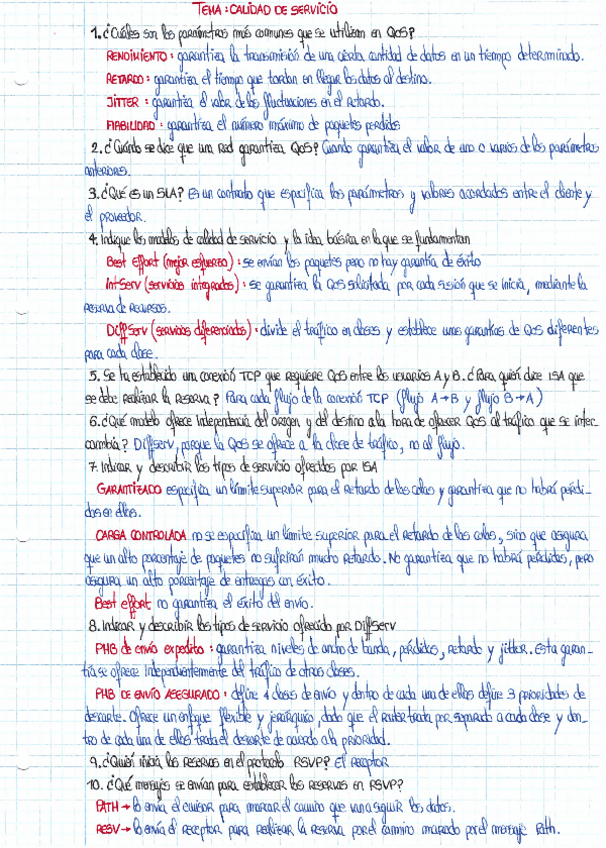 TEMA: CALIDAD DE SERVICIO
1. ¿Cuáles son los parámetros más comunes que se utilizan en QoS?
RENDIMIENTO: garantiza la transmisión de una cierta cantidad de datos en un tiempo determinado.
RETARDO: garantiza el tiempo que tardan en llegar los datos al destino.
JITTER: garantiza el valor de las fluctuaciones en el retardo.
FIABILIDAD: garantiza el número máximo de paquetes perdidos
2. ¿Cuándo se dice que una red garantiza QoS? Cuando garantiza el valor de uno o varios de los parámetros
anteriores.
3. ¿Qué es un SLA? Es un contrato que especifica los parámetros y valores acordados entre el cliente y
el proveedor.
4. Indique los modelos de calidad de servicio y la idea básica en la que se fundamentan
Best Effort (mejor esfuerzo): se envían los paquetes pero no hay garantía de éxito
IntServ (servicios integrados): se garantiza la QoS solicitada por cada sesión que se inicia, mediante la
reserva de recursos.
DiffServ (servicios diferenciados): divide el tráfico en clases y establece unas garantías de QoS diferentes
para cada clase.
5. Se ha establecido una conexión TCP que requiere QoS entre los usuarios A y B. ¿Para quién dice ISA que
se debe realizar la reserva? Para cada flujo de la conexión TCP (flujo A→B y flujo B→A)
6. ¿Qué modelo ofrece independencia del origen y del destino a la hora de ofrecer QoS al tráfico que se inter-
cambia? Diffserv, porque la QoS se ofrece a la clase de tráfico, no al flujo.
7. Indicar y describir los tipos de servicio ofrecidos por ISA
GARANTIZADO especifica un límite superior para el retardo de las colas y garantiza que no habrá pérdi-
das en ellas.
CARGA CONTROLADA no se especifica un límite superior para el retardo de las colas, sino que asegura
que un alto porcentaje de paquetes no sufrirán mucho retardo. No garantiza que no habrá pérdidas, pero
asegura un alto porcentaje de entregas con éxito.
Best effort no garantiza el éxito del envío.
8. Indicar y describir los tipos de servicio ofrecido por DiffServ
PHB de envío expedito: garantiza niveles de ancho de banda, pérdidas, retardo y jitter. Esta garan-
tía se ofrece independientemente del tráfico de otras clases.
PHB DE ENVÍO ASEGURADO: define 4 clases de envío y dentro de cada una de ellas define 3 prioridades de
descarte. Ofrece un enfoque flexible y jerárquico, dado que el router trata por separado a cada clase y den-
tro de cada una de ellas trata el descarte de acuerdo a la prioridad.
9. ¿Quién inicia las reservas en el protocolo RSVP? El receptor
10. ¿Qué mensajes se envían para establecer las reservas en RSVP?
PATH → lo envía el emisor para marcar el camino que van a seguir los datos.
RESV → lo envía el receptor para realizar la reserva por el camino marcado por el mensaje Path.